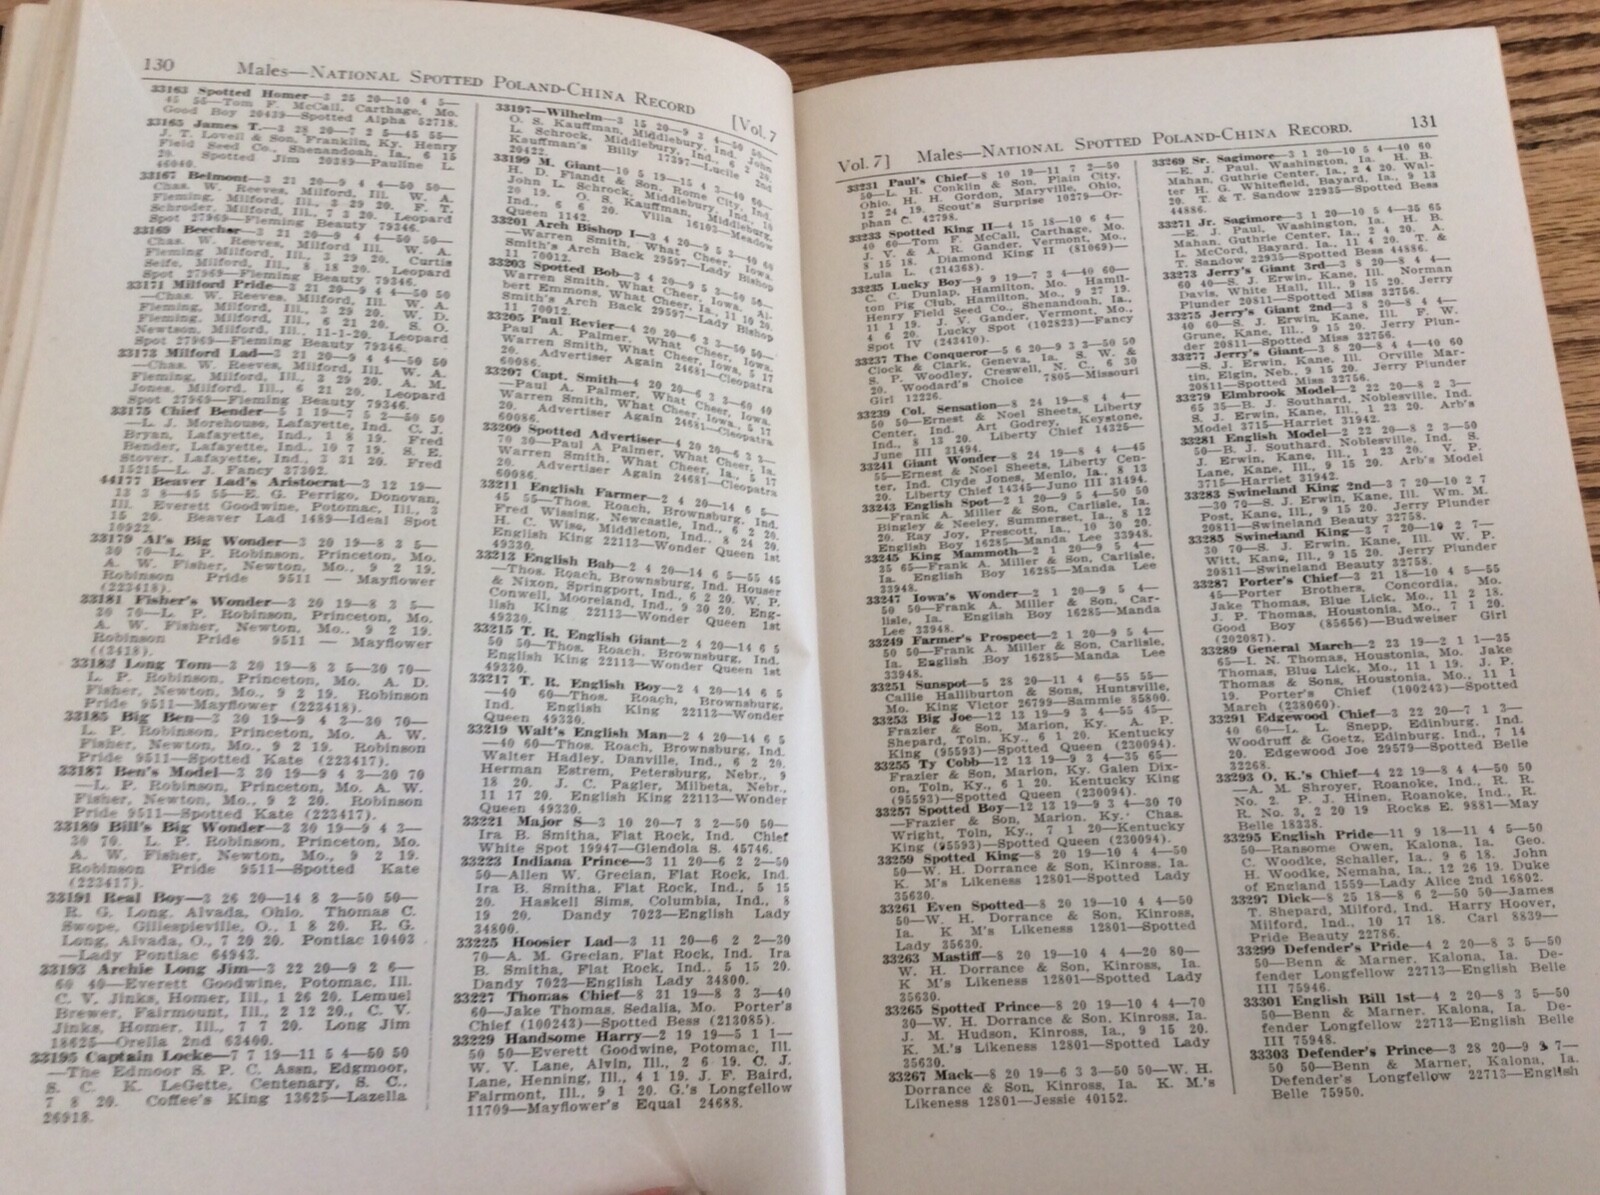 130 Males—NATIONAL SPOTTED POLAND-CHINA RECORD [Vol. 7
33163 Spotted Homer—3 25 20—10 4 5—
45 55—Tom F. McCall, Carthage, Mo.
Good Boy 20439—Spotted Alpha 52718.
33165 James T.—3 28 20—7 2 5—45 55—
J. T. Lovell & Son, Franklin, Ky. Henry
Field Seed Co., Shenandoah, Ia., 6 15
20. Spotted Jim 20289—Pauline L.
46040.
33167 Belmont—3 21 20—9 4 4—50 50—
Chas. W. Reeves, Milford, Ill. W. A.
Fleming, Milford, Ill., 3 29 20. F. T.
Schroder, Milford, Ill., 7 3 20. Leopard
Spot 27969—Fleming Beauty 79346.
33169 Beecher—3 21 20—9 4 4—50 50—
Chas. W. Reeves, Milford Ill. W. A.
Fleming Milford, Ill., 3 29 20. Curtis
Seife, Milford, Ill., 8 18 20. Leopard
Spot 27969—Fleming Beauty 79346.
33171 Milford Pride—3 21 20—9 4 4—50 50
—Chas. W. Reeves, Milford, Ill. W. A.
Fleming, Milford, Ill., 3 29 20. W. D.
Fleming, Milford, Ill., 6 21 20. S. O.
Newtson, Milford, Ill., 11-1-20. Leopard
Spot 27969—Fleming Beauty 79346.
33173 Milford Lad—3 21 20—9 4 4—50 50
—Chas. W. Reeves, Milford, Ill. W. A.
Fleming, Milford, Ill., 3 29 20. A. M.
Jones, Milford, Ill., 6 21 20. Leopard
Spot 27969—Fleming Beauty 79346.
33175 Chief Bender—5 1 19—7 5 2—50 50
—L. J. Morehouse, Lafayette, Ind. C. J.
Bryan, Lafayette, Ind., 1 8 19. Fred
Bender, Lafayette, Ind., 10 7 19. S. E.
Stover, Lafayette, Ind., 3 31 20. Fred
15215—L. J. Fancy 37302.
44177 Beaver Lad's Aristocrat—3 12 19—
13 3 8—45 55—E. G. Perrigo, Donovan,
Ill. Everett Goodwine, Potomac, Ill., 3
15 20. Beaver Lad 1489—Ideal Spot
10922.
33179 Al's Big Wonder—3 20 19—8 3 5—
30 70—L. P. Robinson, Princeton, Mo.
A. W. Fisher, Newton, Mo., 9 2 19.
Robinson Pride 9511 — Mayflower
(223418).
33181 Fisher's Wonder—3 20 19—8 3 5—
30 70—L. P. Robinson, Princeton, Mo.
A. W. Fisher, Newton, Mo., 9 2 19.
Robinson Pride 9511 — Mayflower
((3418).
33183 Long Tom—3 20 19—8 3 5—30 70—
L. P. Robinson, Princeton, Mo. A. D.
Fisher, Newton, Mo., 9 2 19. Robinson
Pride 9511—Mayflower (223418).
33185 Big Ben—3 30 19—9 4 3—30 70—
L. P. Robinson, Princeton, Mo. A. W.
Fisher, Newton, Mo., 9 2 19. Robinson
Pride 9511—Spotted Kate (223417).
33187 Ben's Model—3 30 19—9 4 3—30 70
—L. P. Robinson, Princeton, Mo. A. W.
Fisher, Newton, Mo., 9 2 20. Robinson
Pride 9511—Spotted Kate (223417).
33189 Bill's Big Wonder—3 30 19—9 4 3—
30 70. L. P. Robinson, Princeton, Mo.
A. W. Fisher, Newton, Mo., 9 2 19.
Robinson Pride 9511—Spotted Kate
(223417).
33191 Real Boy—3 26 20—14 8 3—50 50—
R. G. Long, Alvada, Ohio. Thomas C.
Swope, Gillespieville, O., 1 8 20. R. G.
Long, Alvada, O., 7 20 20. Pontiac 10403
—Lady Pontiac 64943.
33193 Archie Long Jim—3 22 20—9 2 6—
60 40—Everett Goodwine, Potomac, Ill.
C. V. Jinks, Homer, Ill., 1 26 20. Lemuel
Brewer, Fairmount, Ill., 2 12 20., C. V.
Jinks, Homer, Ill., 7 7 20. Long Jim
18625—Orella 2nd 63400.
33195 Captain Locke—7 7 19—11 5 4—50 50
—The Edmoor S. P. C. Assn, Edgmoor,
S. C. K. LeGette, Centenary, S. C.,
7 8 20. Coffee's King 13625—Lazella
26918.
33197—Wilhelm—3 15 20—9 3 4—50 50—
O. S. Kauffman, Middlebury, Ind. John
L. Schrock, Middlebury, Ind., 6 2 20.
Kauffman's Billy 17397—Lucile 2nd
20422.
33199 M. Giant—10 5 19—15 4 3—40 60—
H. D. Flandt & Son, Rome City, Ind.
John L. Schrock, Middlebury, Ind., 10
20 19. O. S. Kauffman, Middlebury,
Ind., 6 6 20. Villa 16103—Meadow
Queen 1142.
33201 Arch Bishop I—3 4 20—9 5 3—40 60
—Warren Smith, What Cheer, Iowa.
Smith's Arch Back 29597—Lady Bishop
11 70012.
33203 Spotted Bob—3 4 20—9 5 3—50 50—
Warren Smith, What Cheer, Iowa. Al-
bert Emmons, What Cheer, Ia., 11 10 20.
Smith's Arch Back 29597—Lady Bishop
11 70012.
33205 Paul Revier—4 20 20—6 3 3—50 50—
Paul A. Palmer, What Cheer, Iowa.
Warren Smith, What Cheer, Iowa, 5 17
20. Advertiser Again 24681—Cleopatra
60086.
33207 Capt. Smith—4 20 20—6 3 3—60 40
—Paul A. Palmer, What Cheer, Iowa.
Warren Smith, What Cheer, Iowa., 5 17
20. Advertiser Again 24681—Cleopatra
60086.
33209 Spotted Advertiser—4 20 20—6 3 3—
70 30—Paul A Palmer, What Cheer, Ia.
Warren Smith, What Cheer, Ia., 5 17
20. Advertiser Again 24681—Cleopatra
60086.
33211 English Farmer—2 4 20—14 6 5—
45 55—Thos. Roach, Brownsburg, Ind.
Fred Wissing, Newcastle, Ind., 6 2 20.
H. C. Wise, Middleton, Ind., 8 24 20.
English King 22113—Wonder Queen 1st
49330.
33213 English Bab—2 4 20—14 6 5—55 45
—Thos. Roach, Brownsburg, Ind. Houser
& Nixon, Springport, Ind., 6 2 20. W. P.
Conwell, Mooreland, Ind., 9 30 20. Eng-
lish King 22113—Wonder Queen 1st
49330.
33215 T. R. English Giant—2 4 20—14 6 5
50 50—Thos. Roach. Brownsburg, Ind.
English King 22113—Wonder Queen 1st
49330.
33217 T. R. English Boy—2 4 20—14 6 5
—40 60—Thos. Roach, Brownsburg,
Ind. English King 22113—Wonder
Queen 49330.
33219 Walt's English Man—2 4 20—14 6 5
—40 60—Thos. Roach, Brownsburg, Ind.
Walter Hadley, Danville, Ind., 6 2 20.
Herman Estrem, Petersburg, Nebr., 9
18 20. J. C. Pagler, Milbeta, Nebr.,
11 17 20. English King 22113—Wonder
Queen 49330.
33221 Major S—3 10 20—7 3 2—50 50—
Ira B. Smitha, Flat Rock, Ind. Chief
White Spot 19947—Glendola S. 45746.
33223 Indiana Prince—3 11 20—6 2 2—50
50—Allen W. Grecian, Flat Rock, Ind.
Ira B. Smitha, Flat Rock, Ind., 5 15
20. Haskell Sims, Columbia, Ind., 8
19 20. Dandy 7023—English Lady
34800.
33225 Hoosier Lad—3 11 20—6 2 2—30
70—A. M. Grecian, Flat Rock, Ind. Ira
B. Smitha, Flat Rock, Ind., 5 15 20.
Dandy 7023—English Lady 34800.
33227 Thomas Chief—8 31 19—8 3 3—40
60—Jake Thomas, Sedalia, Mo. Porter's
Chief (100243)—Spotted Bess (213085).
33229 Handsome Harry—2 19 19—5 1 1—
50 50—Everett Goodwine, Potomac, Ill.
W. V. Lane, Alvin, Ill., 2 6 19. C. J.
Lane, Henning, Ill., 4 1 19. J. F. Baird,
Fairmont, Ill., 9 1 20. G.'s Longfellow
11709—Mayflower's Equal 24688.
Vol. 7] Males—NATIONAL SPOTTED POLAND-CHINA RECORD. 131
33231 Paul's Chief—8 10 19—11 7 2—50
50—L. H. Conklin & Son, Plain City,
Ohio. H. H. Gordon, Maryville, Ohio,
12 24 19. Scout's Surprise 10279—Or-
phan C. 42798.
33233 Spotted King II—4 15 18—10 6 4—
40 60—Tom F. McCall, Carthage, Mo.
J. V. & A. R. Gander, Vermont, Mo.,
8 15 18. Diamond King II (81069)—
Lula L. (214368).
33235 Lucky Boy—9 9 19—7 3 4—40 60—
C. C. Dunlap, Hamilton, Mo. Hamil-
ton Pig Club, Hamilton, Mo., 9 27 19.
Henry Field Seed Co., Shenandoah, Ia.,
11 1 19. J. V. Gander, Vermont, Mo.,
4 6 20. Lucky Spot (102823)—Fancy
Spot IV (243410).
33237 The Conqueror—5 6 20—9 3 3—50 50
Clock & Clark, Geneva, Ia. S. W. &
S. P. Woodley, Creswell, N. C., 6 30
20. Woodard's Choice 7805—Missouri
Girl 12226.
33239 Col. Sensation—8 24 19—8 4 4—
50 50—Ernest & Noel Sheets, Liberty
Center, Ind. Art Godrey, Keystone,
Ind., 8 13 20. Liberty Chief 14325—
June III 31494.
33241 Giant Wonder—8 24 19—8 4 4—45
55—Ernest & Noel Sheets, Liberty Cen-
ter, Ind. Clyde Jones, Menlo, Ia., 8 13
20. Liberty Chief 14345—Juno III 31494.
33243 English Spot—2 1 20—9 5 4—50 50
—Frank A. Miller & Son, Carlisle, Ia.
Bingley & Neeley, Summerset, Ia., 8 12
20. Ray Joy, Prescott, Ia., 10 30 20.
English Boy 16285—Manda Lee 33948.
33245 King Mammoth—2 1 20—9 5 4—
35 65—Frank A. Miller & Son, Carlisle,
Ia. English Boy 16285—Manda Lee
33948.
33247 Iowa's Wonder—2 1 20—9 5 4—
50 50—Frank A. Miller & Son, Car-
lisle, Ia. English Boy 16285—Manda
Lee 33948.
33249 Farmer's Prospect—2 1 20—9 5 4—
50 50—Frank A. Miller & Son, Carlisle,
Ia. English Boy 16285—Manda Lee
33948.
33251 Sunspot—5 28 20—11 4 6—55 55—
Callie Halliburton & Sons, Huntsville,
Mo. King Victor 26799—Sammie 85800.
33253 Big Joe—12 13 19—9 3 4—55 45—
Frazier & Son, Marion, Ky. A. P.
Shepard, Toln, Ky., 6 1 20. Kentucky
King (95593)—Spotted Queen (230094).
33255 Ty Cobb—12 13 19—9 3 4—35 65—
Frazier & Son, Marion, Ky. Galen Dix-
on, Toln, Ky., 6 1 20. Kentucky King
(95593)—Spotted Queen (230094).
33257 Spotted Boy—12 13 19—9 3 4—30 70
—Frazier & Son, Marion, Ky. Chas.
Wright, Toln, Ky., 7 1 20—Kentucky
King (95593)—Spotted Queen (230094).
33259 Spotted King—8 20 19—10 4 4—50
50—W. H. Dorrance & Son, Kinross, Ia.
K. M's Likeness 12801—Spotted Lady
35630.
33261 Even Spotted—8 20 19—10 4 4—50
50—W. H. Dorrance & Son, Kinross,
Ia. K M's Likeness 12801—Spotted
Lady 35630.
33263 Mastiff—8 20 19—10 4 4—20 80—
W. H. Dorrance & Son, Kinross, Ia.
K M's Likeness 12801—Spotted Lady
35630.
33265 Spotted Prince—8 20 19—10 4 4—70
30—W. H. Dorrance & Son, Kinross, Ia.
J. M. Hudson, Kinross, Ia., 9 15 20.
K. M.'s Likeness 12801—Spotted Lady
35630.
33267 Mack—8 20 19—6 3 3—50 50—W. H.
Dorrance & Son, Kinross, Ia. K. M.'s
Likeness 12801—Jessie 40152.
33269 Sr. Sagimore—3 1 20—10 5 4—40 60
—E. J. Paul, Washington, Ia. H. B.
Mahan, Guthrie Center, Ia., 2 4 20. Wal-
ter H. G. Whitefield, Bayard, Ia., 9 13
20. T. & T. Sandow 22935—Spotted Bess
44886.
33271 Jr. Sagimore—3 1 20—10 5 4—35 65
—E. J. Paul, Washington, Ia. H. B.
Mahan, Guthrie Center, Ia., 2 4 20. A.
L. McCord, Bayard, Ia., 11 4 20. T. &
T. Sandow 22935—Spotted Bess 44886.
33273 Jerry's Giant 3rd—3 8 20—8 4 4—
60 40—S. J. Erwin, Kane, Ill. Norman
Davis, White Hall, Ill., 9 15 20. Jerry
Plunder 20811—Spotted Miss 32756.
33275 Jerry's Giant 2nd—3 8 20—8 4 4—
40 60—S. J. Erwin, Kane, Ill. F. W.
Grune, Kane, Ill., 9 15 20. Jerry Plun-
der 20811—Spotted Miss 32756.
33277 Jerry's Giant—3 8 20—8 4 4—40 60
—S. J. Erwin, Kane, Ill. Orville Mar-
tin, Elgin, Neb., 9 15 20. Jerry Plunder
20811—Spotted Miss 32756.
33279 Elmbrook Model—2 22 20—8 2 3—
65 35—B. J. Southard, Noblesville, Ind.
S. J. Erwin, Kane, Ill., 1 23 20. Arb's
Model 3715—Harriet 31942.
33281 English Model—2 22 20—8 2 3—50
50—B. J. Southard, Noblesville, Ind. S.
J. Erwin, Kane, Ill., 1 23 20. V. P.
Lane, Kane, Ill., 9 15 20. Arb's Model
3715—Harriet 31942.
33283 Swineland King 2nd—3 7 20—10 2 7
—30 70—S. J. Erwin, Kane, Ill. Wm. M.
Post, Kane, Ill., 9 15 20. Jerry Plunder
20811—Swineland Beauty 32758.
33285 Swineland King—3 7 20—10 2 7—
30 70—S. J. Erwin, Kane, Ill. W. P.
Witt, Kane, Ill., 9 15 20. Jerry Plunder
20811—Swineland Beauty 32758.
33287 Porter's Chief—3 21 18—10 4 5—55
45—Porter Brothers, Concordia, Mo.
Jake Thomas, Blue Lick, Mo., 11 2 18.
J. P. Thomas, Houstonia, Mo., 7 1 20.
Good Boy (85656)—Budweiser Girl
(202087).
33289 General March—2 23 19—2 1 1—35
65—I. N. Thomas, Houstonia, Mo. Jake
Thomas, Blue Lick, Mo., 11 1 19. J. P.
Thomas & Sons, Houstonia, Mo., 11 1
19. Porter's Chief (100243)—Spotted
March (238060).
33291 Edgewood Chief—3 22 20—7 1 3—
40 60—L. L. Snepp, Edinburg, Ind.
Woodruff & Goetz, Edinburg, Ind., 7 14
20. Edgewood Joe 29579—Spotted Belle
32268.
33293 O. K.'s Chief—4 22 19—8 4 4—50 50
—A. M. Shroyer, Roanoke, Ind., R. R.
No. 2. P. J. Hinen, Roanoke, Ind., R.
R. No. 3, 2 20 19 Rocks E. 9881—May
Belle 18338.
33295 English Pride—11 9 18—11 4 5—50
50—Ransome Owen, Kalona, Ia. Geo.
C. Woodke, Schaller, Ia., 9 6 18. John
H. Woodke, Nemaha, Ia., 12 26 19. Duke
of England 1559—Lady Alice 2nd 16802.
33297 Dick—8 25 18—8 6 2—50 50—James
T. Shepard, Milford, Ind. Harry Hoover,
Milford, Ind., 10 17 18. Carl 8839—
Pride Beauty 22786.
33299 Defender's Pride—4 2 20—8 3 5—50
50—Benn & Marner, Kalona, Ia. De-
fender Longfellow 22713—English Belle
III 75946.
33301 English Bill 1st—4 2 20—8 3 5—50
50—Benn & Marner, Kalona, Ia. De-
fender Longfellow 22713—English Belle
III 75948.
33303 Defender's Prince—3 28 20—9 2 7—
50 50—Benn & Marner, Kalona, Ia.
Defender's Longfellow 22713—English
Belle 75950.